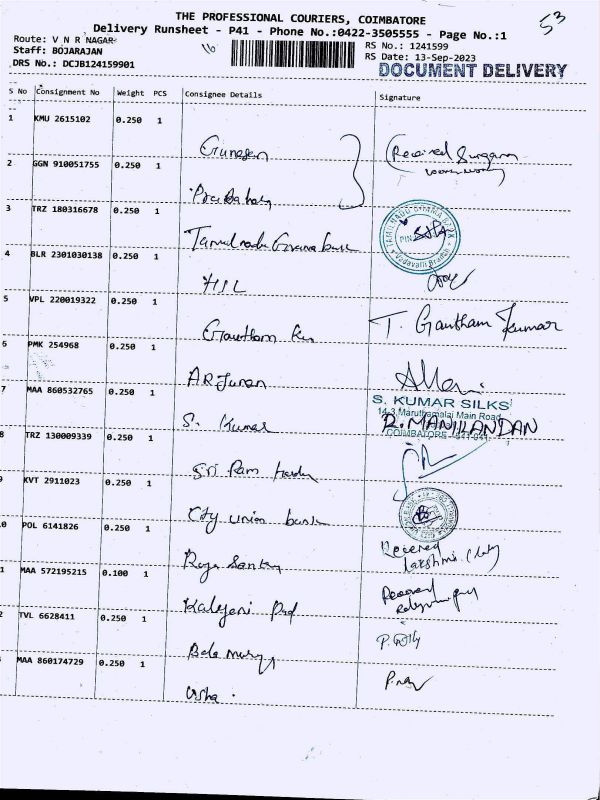 THE PROFESSIONAL COURIERS, COIMBATORE
Delivery Runsheet - P41 - Phone No.:0422-3505555 - Page No.:1
53
Route: V N R NAGAR
Staff: BOJARAJAN
DRS No.: DCJB124159901
RS No.: 1241599
RS Date: 13-Sep-2023
DOCUMENT DELIVERY
S No Consignment No Weight PCS Consignee Details Signature
1 KMU 2615102 0.250 1
Gunasen Received
2 GGN 910051755 0.250 1
Prabahar
3 TRZ 180316678 0.250 1
Tamilnadu Grama bank TAMILNADU GRAMA BANK PIN Vadavalli Branch
4 BLR 2301030138 0.250 1
HSL
5 VPL 220019322 0.250 1
Gowtham T. Gautham Kumar
6 PMK 254968 0.250 1
ARJunan
7 MAA 860532765 0.250 1 S. KUMAR SILKS
14-3, Maruthamalai Main Road
S. Kumar R. MANILANDAN
COIMBATORE - 641 041
8 TRZ 130009339 0.250 1
Sri Ram
9 KVT 2911023 0.250 1
City union bank
0 POL 6141826 0.250 1
Raja Received
Lakshmi
1 MAA 572195215 0.100 1
Kalyani Received
2 TVL 6628411 0.250 1
Bala
MAA 860174729 0.250 1
Usha